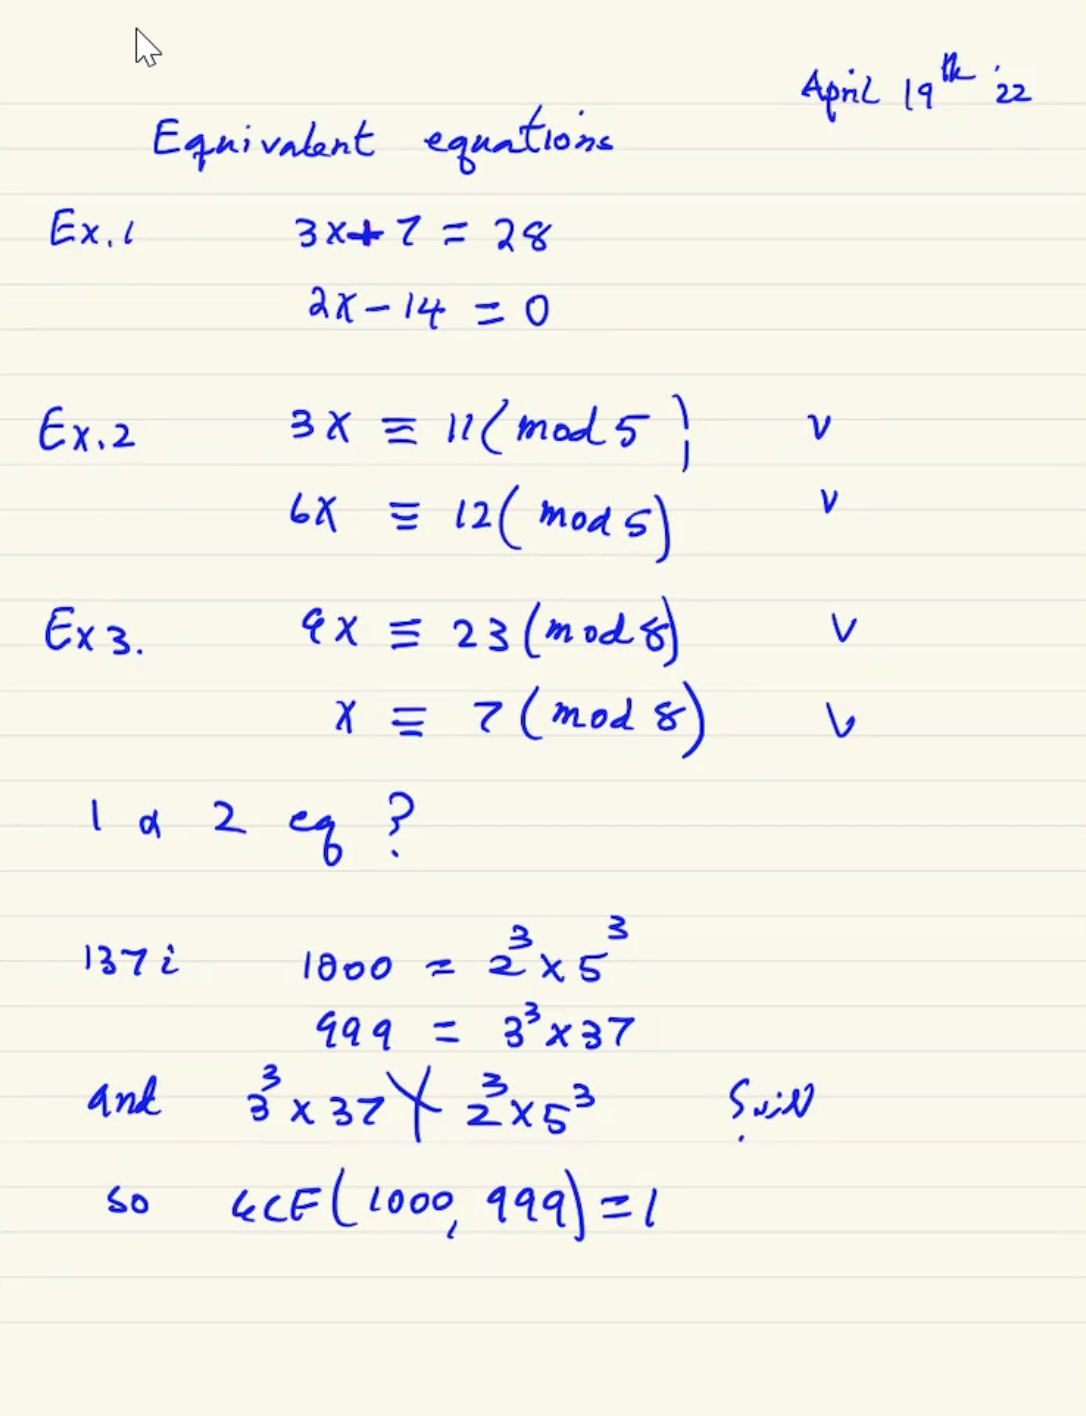 April 19th '22
Equivalent equations
Ex.1 3x+7 = 28
2x-14 = 0
Ex.2 3x ≡ 11(mod 5) v
6x ≡ 12(mod 5) v
Ex3. 9x ≡ 23(mod 8) v
x ≡ 7(mod 8) v
1 & 2 eq ?
137 i 1000 = 2³ x 5³
999 = 3³ x 37
and 3³ x 37 ∤ 2³ x 5³
so GCF(1000, 999) = 1